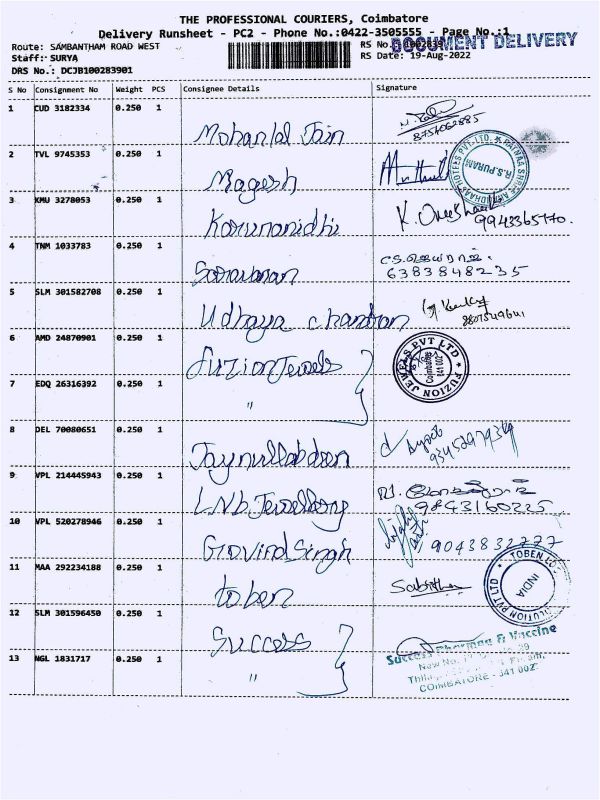 THE PROFESSIONAL COURIERS, Coimbatore
Delivery Runsheet - PC2 - Phone No.:0422-3505555 - Page No.:1
DOCUMENT DELIVERY
Route: SAMBANTHAM ROAD WEST
RS No.:
Staff: SURYA
RS Date: 19-Aug-2022
DRS No.: DCJB100283901
S No Consignment No Weight PCS Consignee Details Signature
1 CUD 3182334 0.250 1 Mohanlal Jain
8754062885
2 TVL 9745353 0.250 1 Magesh
R.S.PURAM
3 KMU 3278053 0.250 1 Karunanidhi K.
9943365770.
4 TNM 1033783 0.250 1 Saravanan
6383848235
5 SLM 301582708 0.250 1 Udhaya chandran
6 AMD 24870901 0.250 1 Fuzion Jewels
FUZION JEWELS PVT LTD
Coimbatore
641 002
7 EDQ 26316392 0.250 1 "
8 DEL 70080651 0.250 1 Jaynullabdeen
9 VPL 214445943 0.250 1 L.N.b. Jewellery
9843160225
10 VPL 520278946 0.250 1 Govind Singh
9043832777
11 MAA 292234188 0.250 1 toben
INDIA
12 SLM 301596450 0.250 1 Success
Success Pharma & Vaccine
New No.
13 NGL 1831717 0.250 1 "
COIMBATORE - 641 002